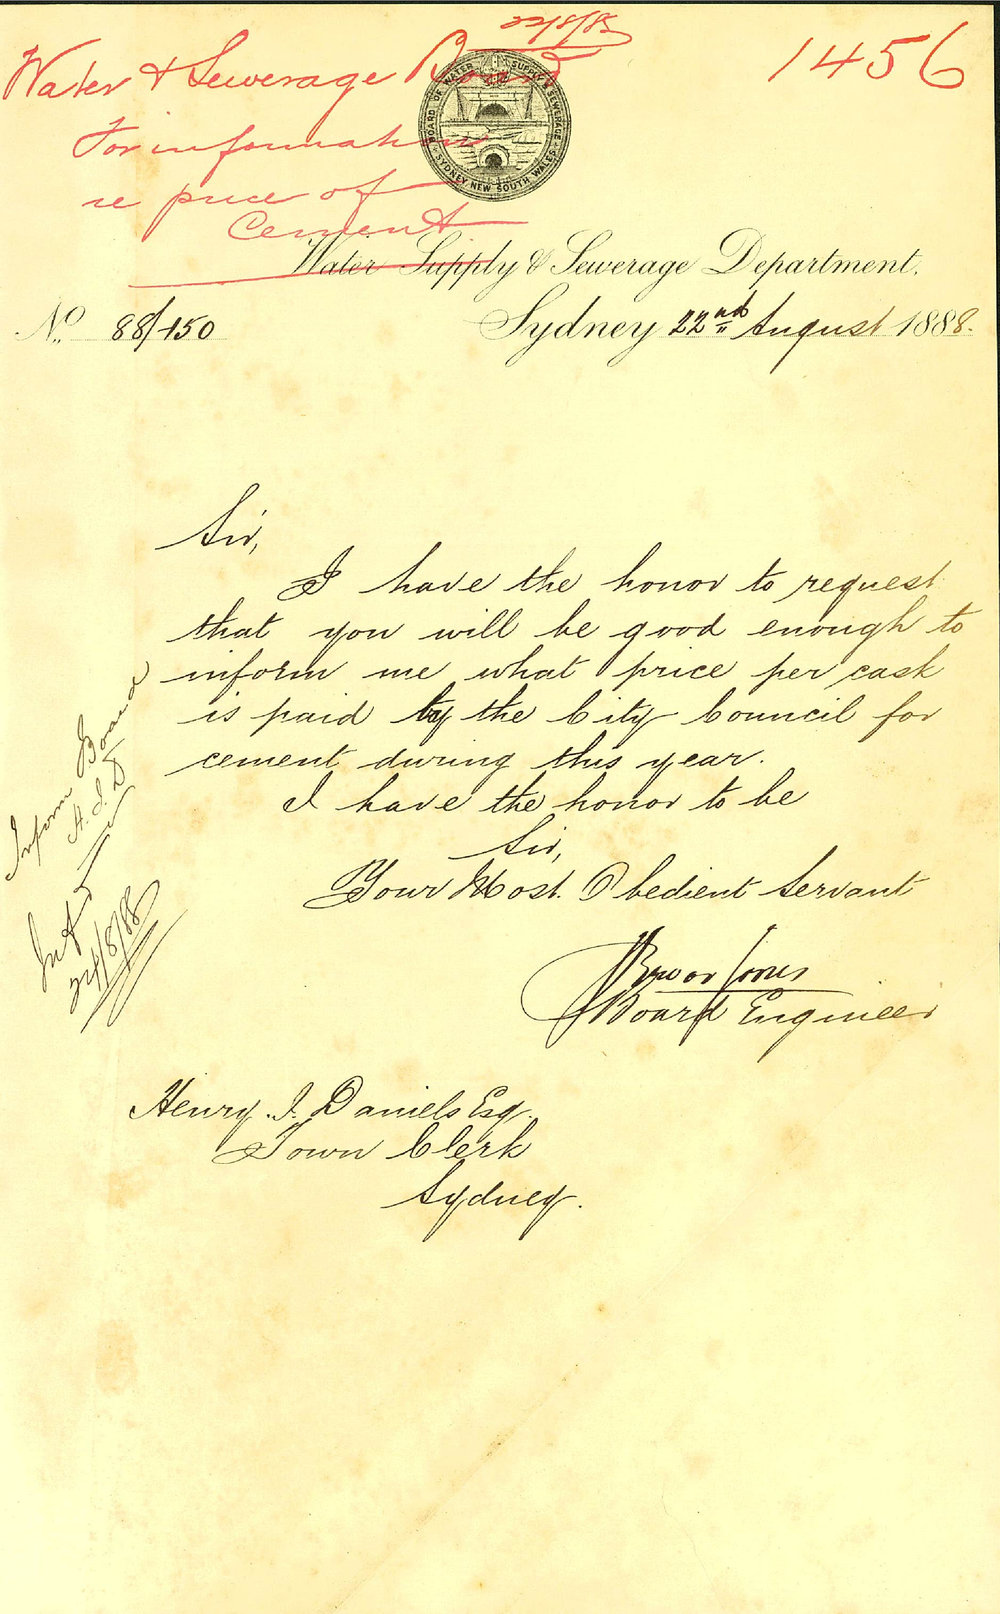 22/8/88
Water & Sewerage Board
1456
For information
re price of
Cement
BOARD OF WATER SUPPLY & SEWERAGE
SYDNEY NEW SOUTH WALES
Water Supply & Sewerage Department.
No. 88/450
Sydney 22nd August 1888.
Sir,
I have the honor to request
that you will be good enough to
inform me what price per cask
is paid by the City Council for
cement during this year.
I have the honor to be
Sir,
Your Most Obedient Servant
Trevor Jones
Board Engineer
Inform Board
H.J.D
24/8/88
Henry. J. Daniels Esq.
Town Clerk
Sydney.